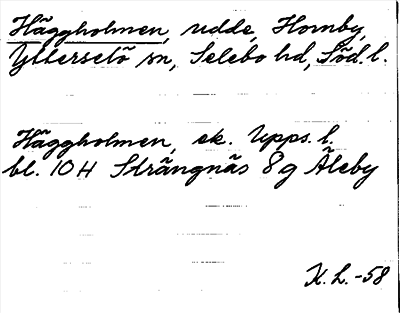 Häggholmen, udde, Homby,
Ytterselö sn, Selebo hd, Söd. l.
Häggholmen, ek. Upps. l.
bl. 10 H Strängnäs 8 g Åleby
K. L. -58